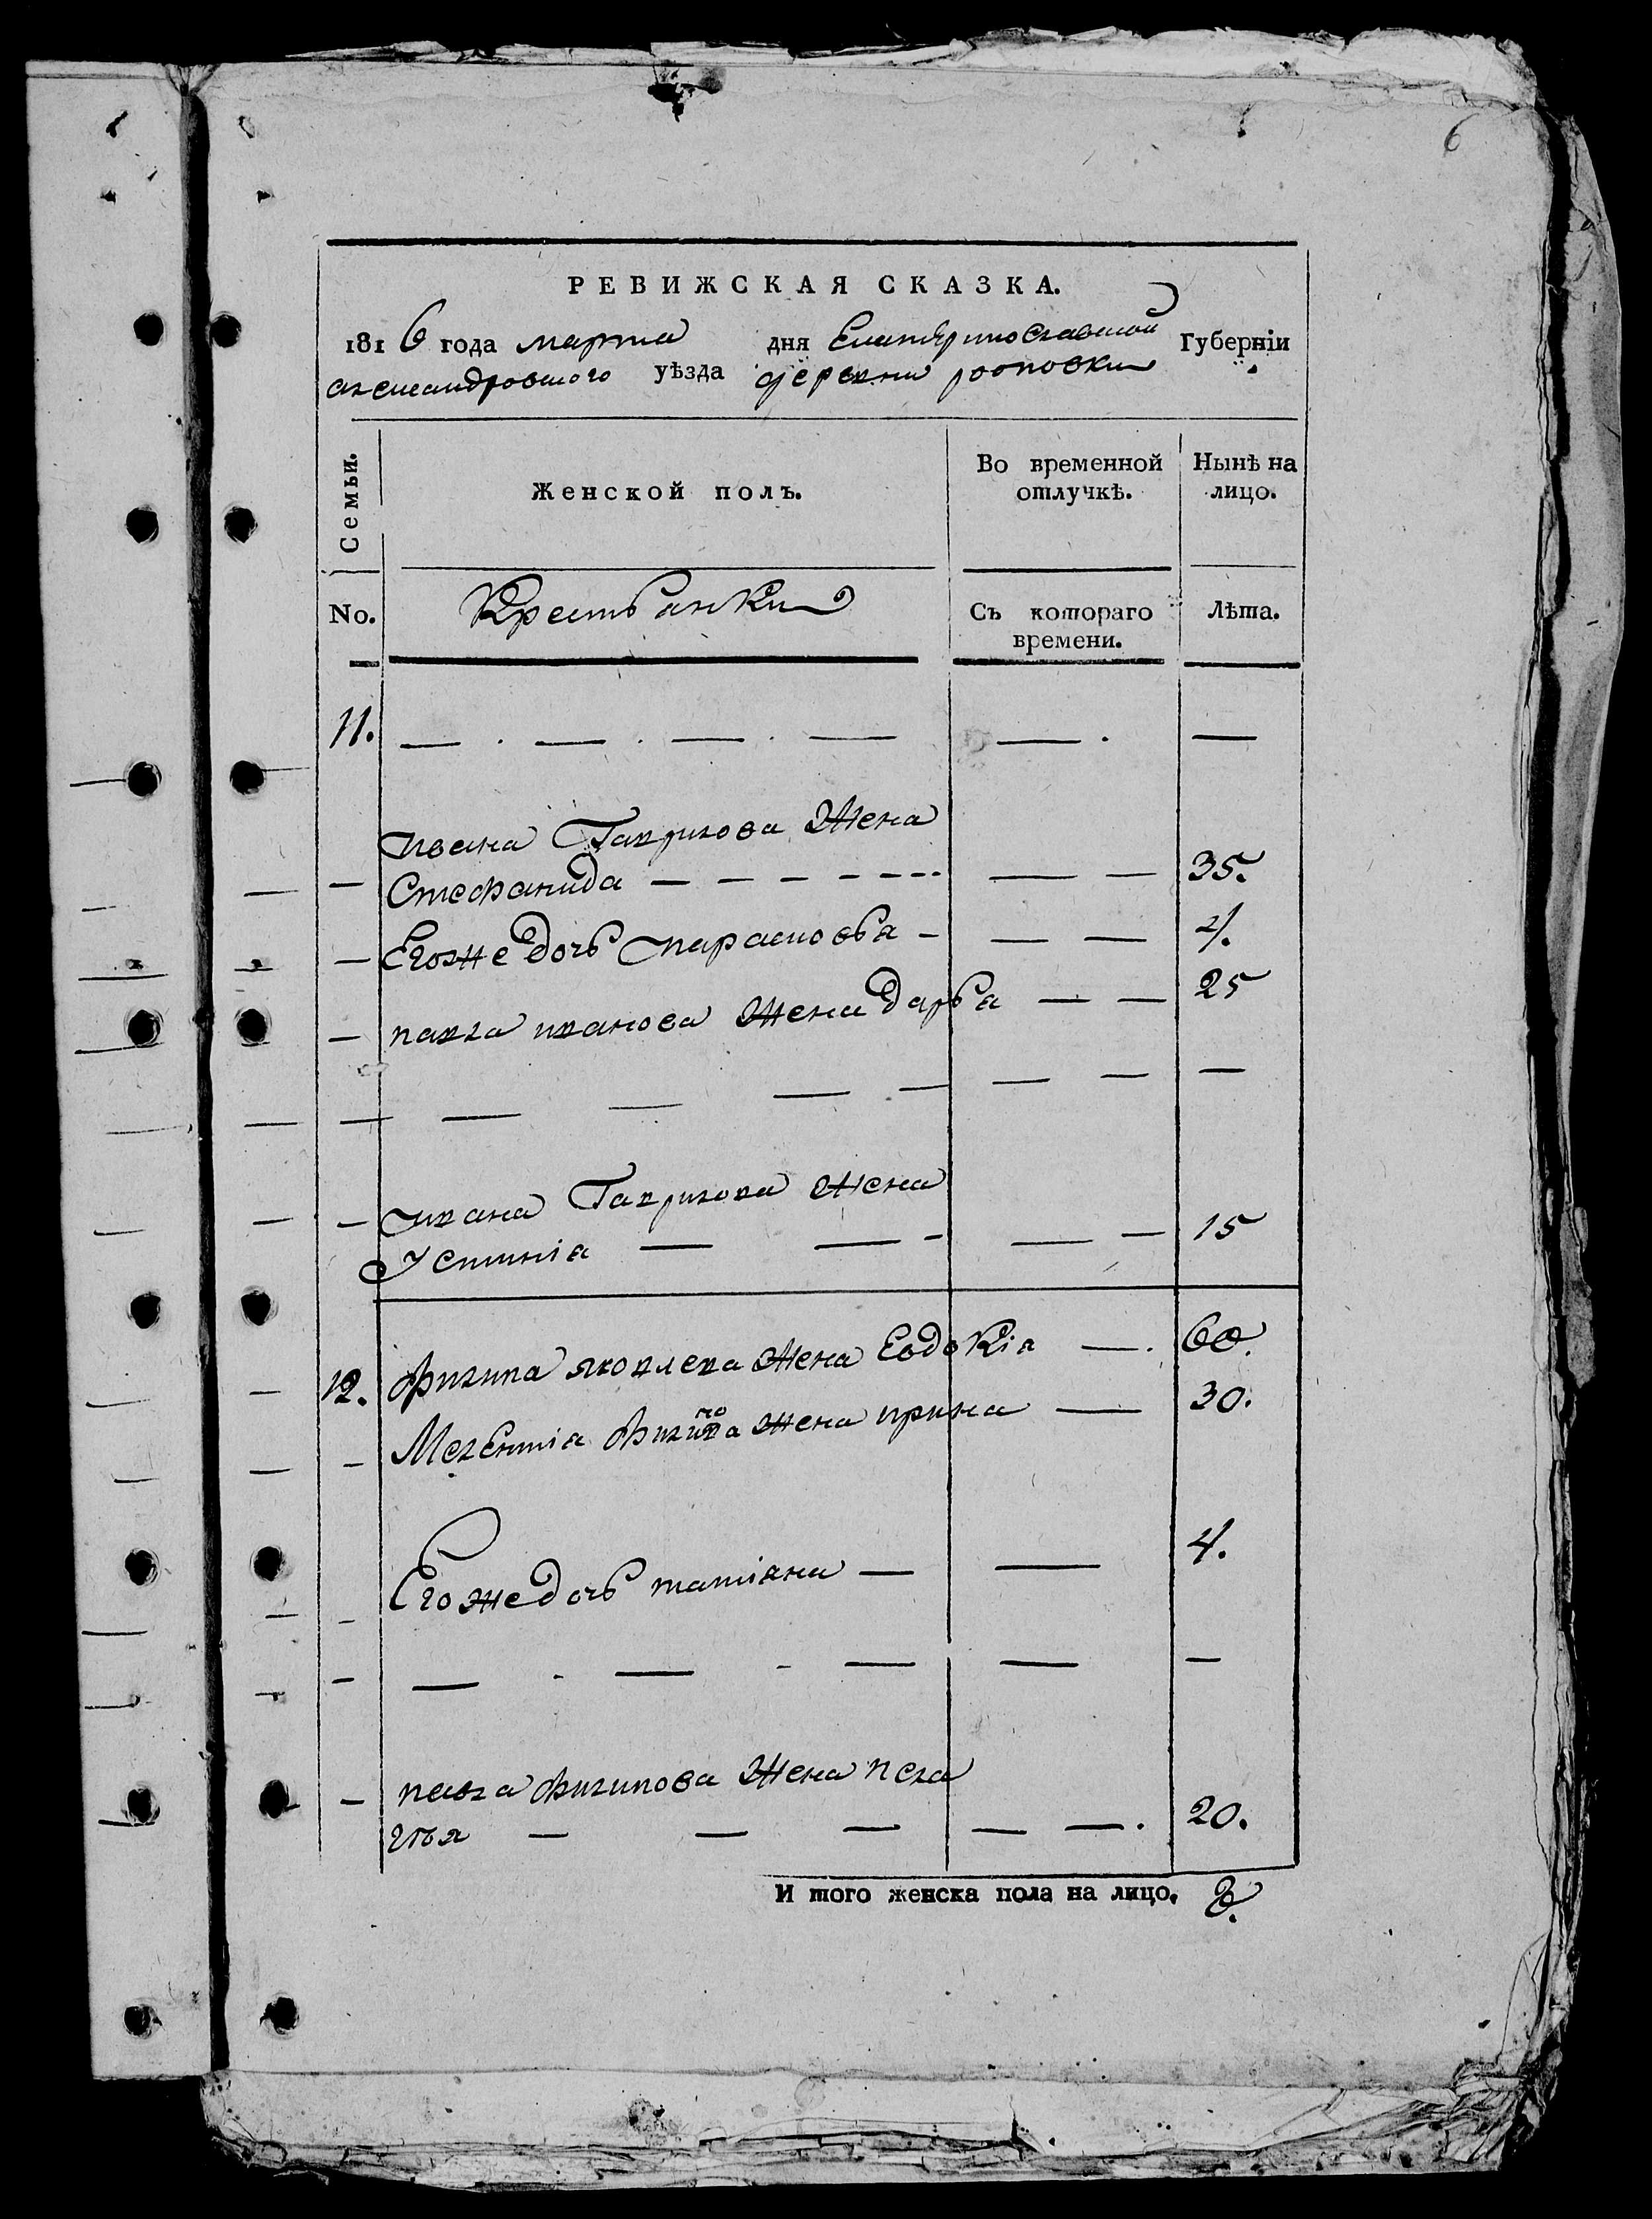 6
РЕВИЖСКАЯ СКАЗКА.
1816 года марта дня Екатеринославской Губернїи
александровского уѣзда деревни роповки
Семьи. Женской полъ. Во временной отлучкѣ. Нынѣ на лицо.
No. Крестьянки Съ котораго времени. Лѣта.
11. — . — . — . — — . —
Ивана Гаврилова Жена
— Стефанида — — — — — — — — 35.
— Егоже дочь парасковья — — — 4.
— павла иванова Жена дарья — — 25
— — — — — — — —
— ивана Гаврилова жена
Устинїя — — - — — 15
12. филипа яковлева жена Евдокїя — . 60.
— Мелентїя филипова жена ирина — 30.
— Егоже дочь татїяна — — 4.
— — - — - — — —
— павла филипова Жена пела
гѣя — — — — — . 20.
И того женска пола на лицо. 8.